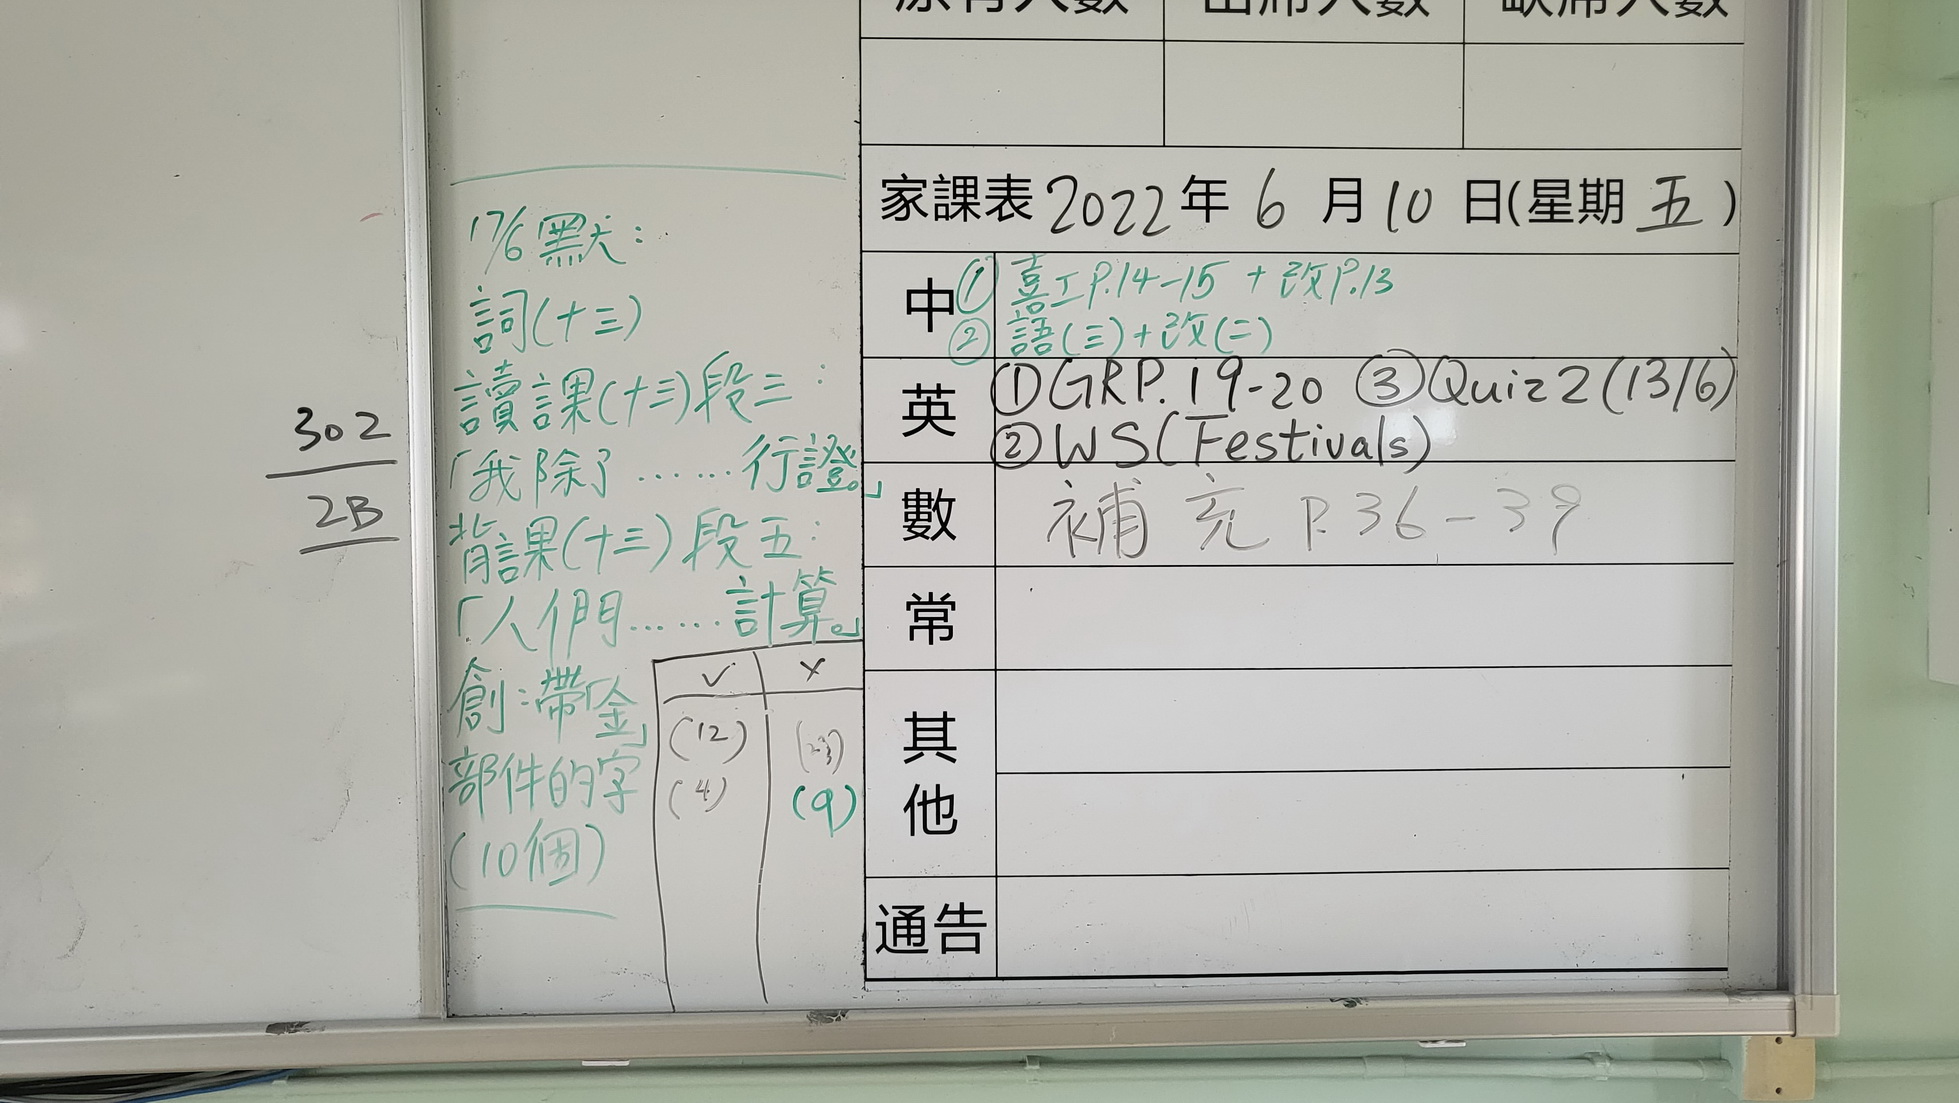 原有人數 出席人數 缺席人數
家課表 2022 年 6 月 10 日(星期 五 )
中 ① 喜工P.14-15 + 改P.13
② 語(三)+改(二)
英 ①GRP.19-20 ③Quiz2(13/6)
②WS(Festivals)
數 補充 P.36-39
常
其他
通告
17/6默:
詞(十三)
讀課(十三)段三:
「我除了……行證。」
背課(十三)段五:
「人們……計算。」
創:帶「金」
部件的字
(10個)
✓ ×
(12)
(4) (9)
302
2B